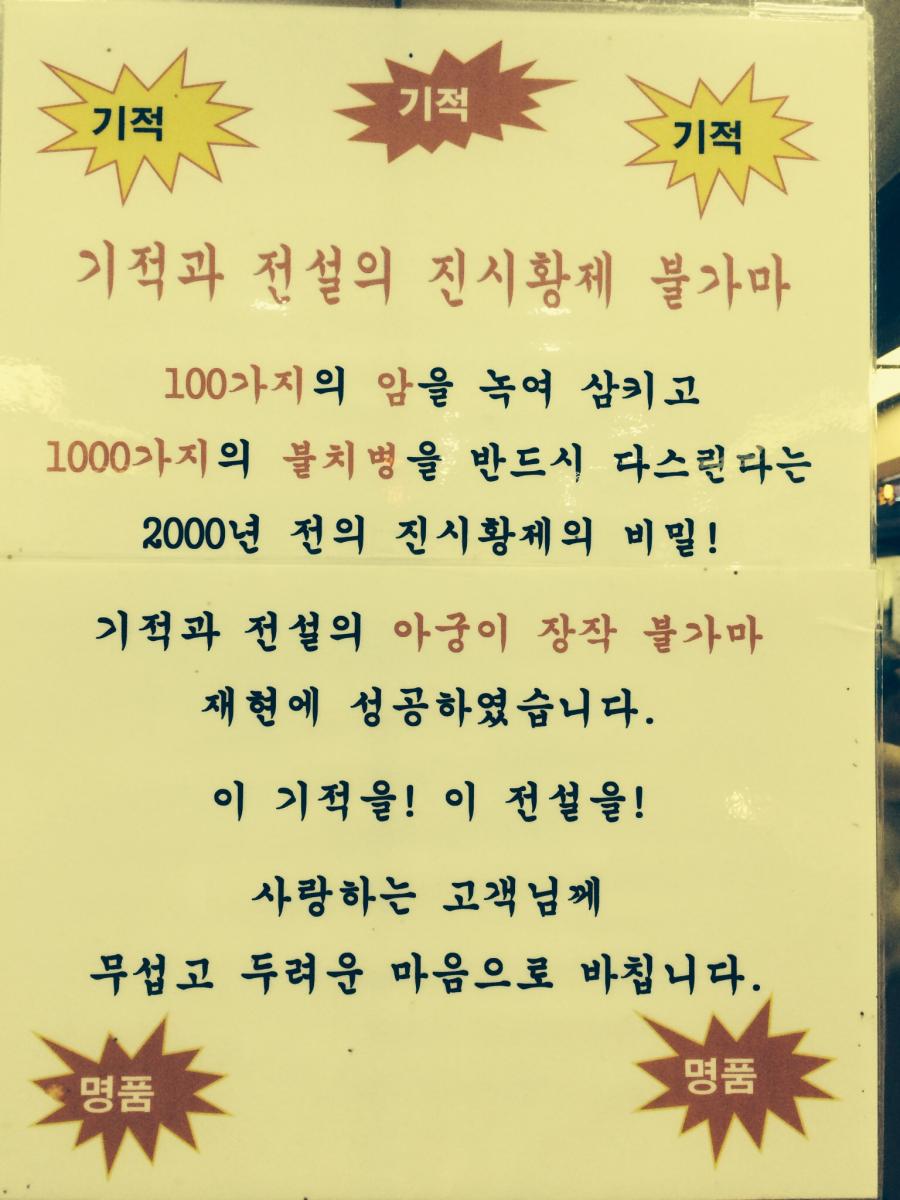 기적
기적
기적
기적과 전설의 진시황제 불가마
100가지의 암을 녹여 삼키고
1000가지의 불치병을 반드시 다스린다는
2000년 전의 진시황제의 비밀!
기적과 전설의 아궁이 장작 불가마
재현에 성공하였습니다.
이 기적을! 이 전설을!
사랑하는 고객님께
무섭고 두려운 마음으로 바칩니다.
명품
명품